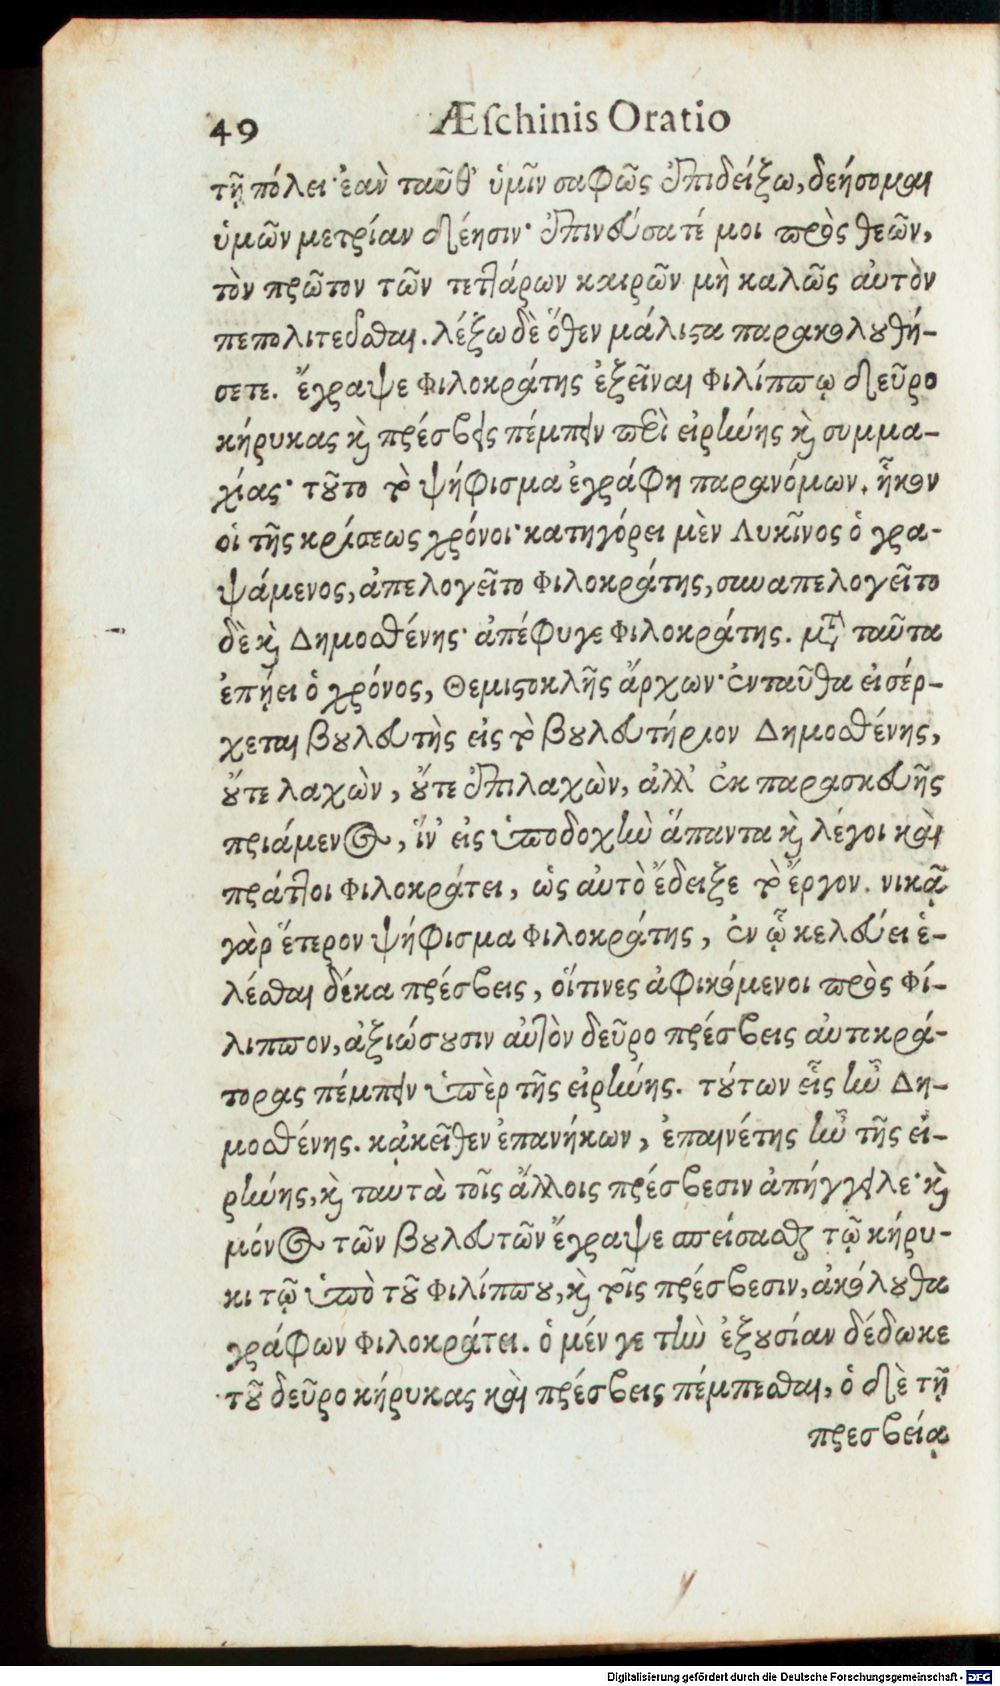 49 Æſchinis Oratio
τῇ πόλει· ἐὰν ταῦθ᾽ ὑμῖν σαφῶς ἐπιδείξω, δεήσομαι
ὑμῶν μετρίαν δέησιν· ἐπινεύσατέ μοι πρὸς θεῶν,
τὸν πρῶτον τῶν τεττάρων καιρῶν μὴ καλῶς αὐτὸν
πεπολιτεῦσθαι. λέξω δὲ ὅθεν μάλιϛα παρακολουθή-
σετε. ἔγραψε Φιλοκράτης ἐξεῖναι Φιλίππῳ δεῦρο
κήρυκας καὶ πρέσβεις πέμπειν περὶ εἰρήνης καὶ συμμα-
χίας· τοῦτο τὸ ψήφισμα ἐγράφη παρανόμων. ἧκον
οἱ τῆς κρίσεως χρόνοι· κατηγόρει μὲν Λυκῖνος ὁ γρα-
ψάμενος, ἀπελογεῖτο Φιλοκράτης, συναπελογεῖτο
δὲ καὶ Δημοσθένης· ἀπέφυγε Φιλοκράτης. μετὰ ταῦτα
ἐπῄει ὁ χρόνος, Θεμιϛοκλῆς ἄρχων· ἐνταῦθα εἰσέρ-
χεται βουλευτὴς εἰς τὸ βουλευτήριον Δημοσθένης,
οὔτε λαχὼν, οὔτε ἐπιλαχὼν, ἀλλ᾽ ἐκ παρασκευῆς
πριάμενος, ἵν᾽ εἰς ὑποδοχὴν ἅπαντα καὶ λέγοι καὶ
πράττοι Φιλοκράτει, ὡς αὐτὸ ἔδειξε τὸ ἔργον. νικᾷ
γὰρ ἕτερον ψήφισμα Φιλοκράτης, ἐν ᾧ κελεύει ἑ-
λέσθαι δέκα πρέσβεις, οἵτινες ἀφικόμενοι πρὸς Φί-
λιππον, ἀξιώσουσιν αὐτὸν δεῦρο πρέσβεις αὐτοκρά-
τορας πέμπειν ὑπὲρ τῆς εἰρήνης. τούτων εἷς ἦν Δη-
μοσθένης. κᾀκεῖθεν ἐπανήκων, ἐπαινέτης ἦν τῆς εἰ-
ρήνης, καὶ ταυτὰ τοῖς ἄλλοις πρέσβεσιν ἀπήγγειλε· καὶ
μόνος τῶν βουλευτῶν ἔγραψε σπείσασθαι τῷ κήρυ-
κι τῷ ὑπὸ τοῦ Φιλίππου, καὶ τοῖς πρέσβεσιν, ἀκόλουθα
γράφων Φιλοκράτει. ὁ μέν γε τὴν ἐξουσίαν δέδωκε
τοῦ δεῦρο κήρυκας καὶ πρέσβεις πέμπεσθαι, ὁ δὲ τῇ
πρεσβείᾳ
Digitalisierung gefördert durch die Deutsche Forschungsgemeinschaft - DFG